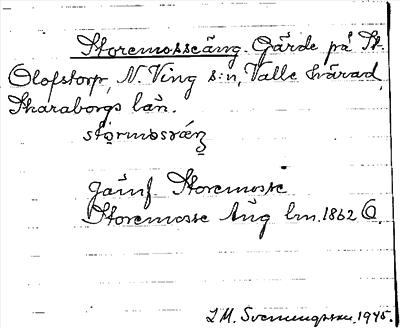 Storemosseäng. Gärde på St.
Olofstorp, N. Ving s:n, Valle härad,
Skaraborgs län.
stormosräŋ
Jämf. Storemosse
Storemosse äng lm. 1862 Ö.
I. M. Svenungsson, 1945.